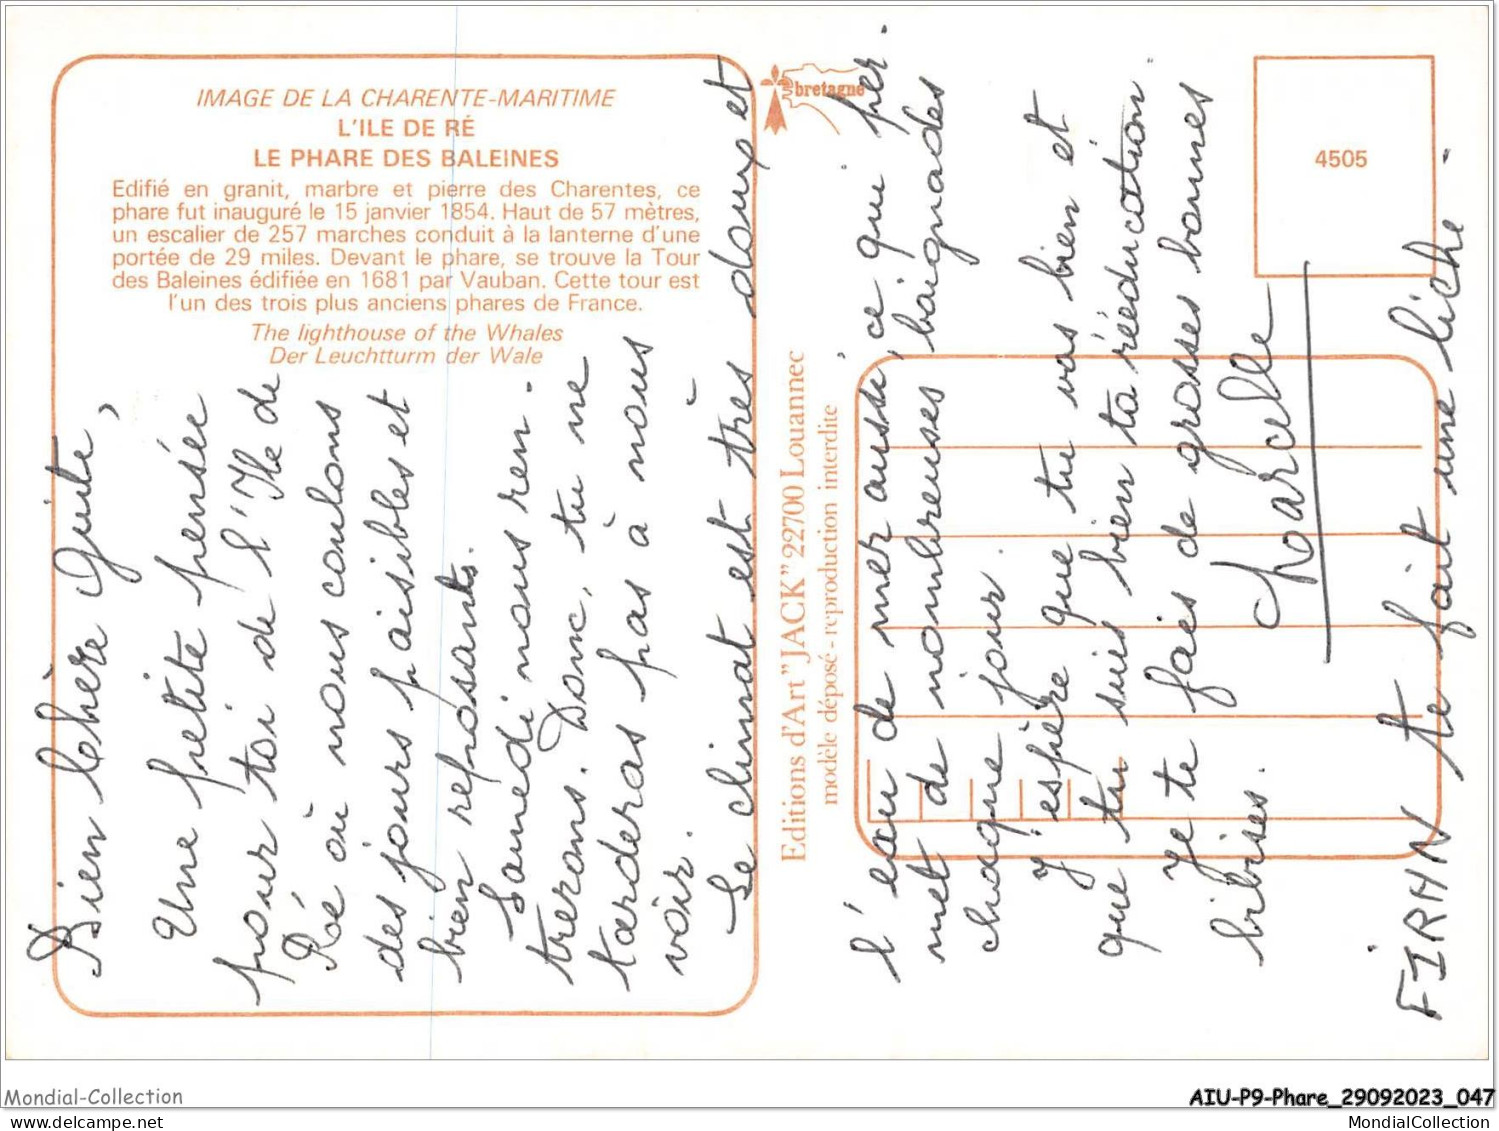 IMAGE DE LA CHARENTE-MARITIME
L'ILE DE RÉ
LE PHARE DES BALEINES
Edifié en granit, marbre et pierre des Charentes, ce
phare fut inauguré le 15 janvier 1854. Haut de 57 mètres,
un escalier de 257 marches conduit à la lanterne d'une
portée de 29 miles. Devant le phare, se trouve la Tour
des Baleines édifiée en 1681 par Vauban. Cette tour est
l'un des trois plus anciens phares de France.
The lighthouse of the Whales
Der Leuchtturm der Wale
bretagne
4505
Editions d'Art "JACK" 22700 Louannec
modèle déposé - reproduction interdite
Bien Chère Guite,
Une petite pensée
pour toi de l'Ile de
Ré où nous coulons
des jours paisibles et
bien reposants.
Samedi nous ren-
trerons. Donc, tu ne
tarderas pas à nous
voir.
Le climat est très doux et
l'eau de mer aussi, ce qui per-
met de nombreuses baignades
chaque jour.
J'espère que tu vas bien et
que tu suis bien ta rééducation.
Je te fais de grosses bonnes
bibises.
Marcelle
FIRMN te fait une liche.
Mondial-Collection
AIU-P9-Phare_29092023_047
MondialCollection.com